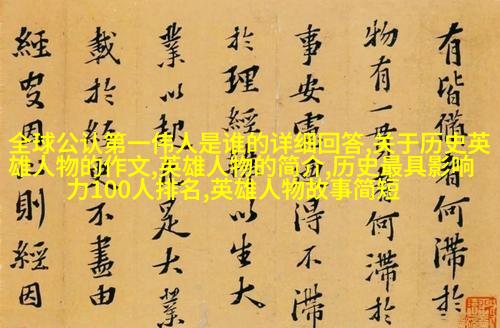 全球公认第一伟人是谁的详细回答,关于历史英
雄人物的作文,英雄人物的简介,历史最具影响
力100人排名,英雄人物故事简短
有皆備者何滯於
物有一何滯於
事安得不滯
於理經以生大
業以足大業
載於不盡由
經因則經因